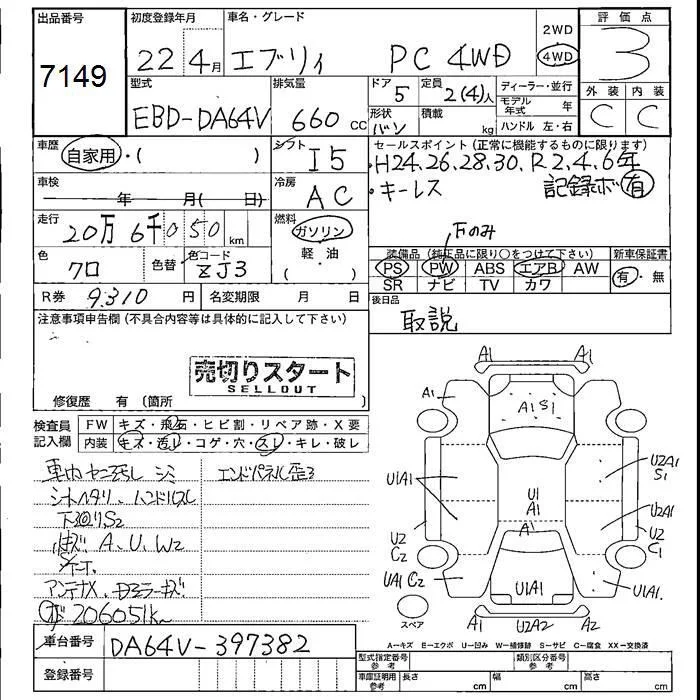 出品番号 初度登録年月 車名・グレード 2WD 評価点
7149 22 4月 エブリィ PC 4WD 4WD 3
型式 排気量 ドア 定員 ディーラー・並行 外装 内装
EBD-DA64V 660cc 5 2(4)人 モデル年式 年 C C
形状 バン 積載 kg ハンドル 左・右
車歴 自家用・( ) シフト I5 セールスポイント(正常に機能するものに限ります)
・H24.26.28.30.R2.4.6年
車検 年 月( 日) 冷房 AC ・キーレス 記録ボ有
走行 20万6千050km 燃料 ガソリン 下のみ
軽・油
( )
色 クロ 色替 色コード ZJ3
装備品(純正品に限り○をつけて下さい) 新車保証書
PS PW ABS エアB AW 有・無
SR ナビ TV カワ
R券 9,310円 名変期限 月 日 後日品
取説
注意事項申告欄(不具合内容等は具体的に記入して下さい)
売切りスタート
SELLOUT
修復歴 有(箇所 )
検査員記入欄 FW キズ・飛石・ヒビ割・リペア跡・X要
内装 キズ・汚レ・コゲ・穴・スレ・キレ・破レ
車内ヤニ汚レ シミ エンドパネル歪ミ
シートヘタリ、ハンドルスレ
下廻りS2
A、U、W2
アンテナX、Dミラーキズ
206051k
A1 A1
A1 A1S1
U1A1 U2A1
S1
U1
A1
U2A1
A1
U2
C2
U2
C1
UA1 C2 U1A1 U1A1.
スペア A1 U2A2 A2
A=キズ E=エクボ U=凹み W=補修跡 S=サビ C=腐食 XX=交換済
車台番号 DA64V-397382
登録番号
型式指定番号 参考 類別区分番号 参考
車庫証明用 参考 長さ cm 幅 cm 高さ cm